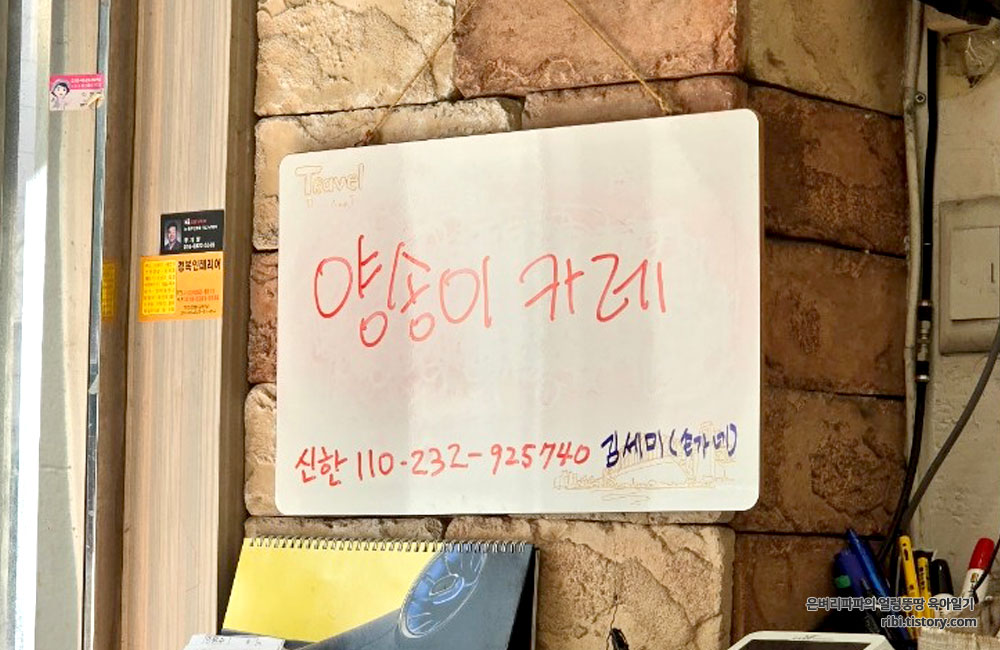 Travel
양송이 카레
신한 110-232-925740 김세미(손가네)
경복인테리어
은벼리파파의 얼렁뚱땅 육아일기
ribi.tistory.com